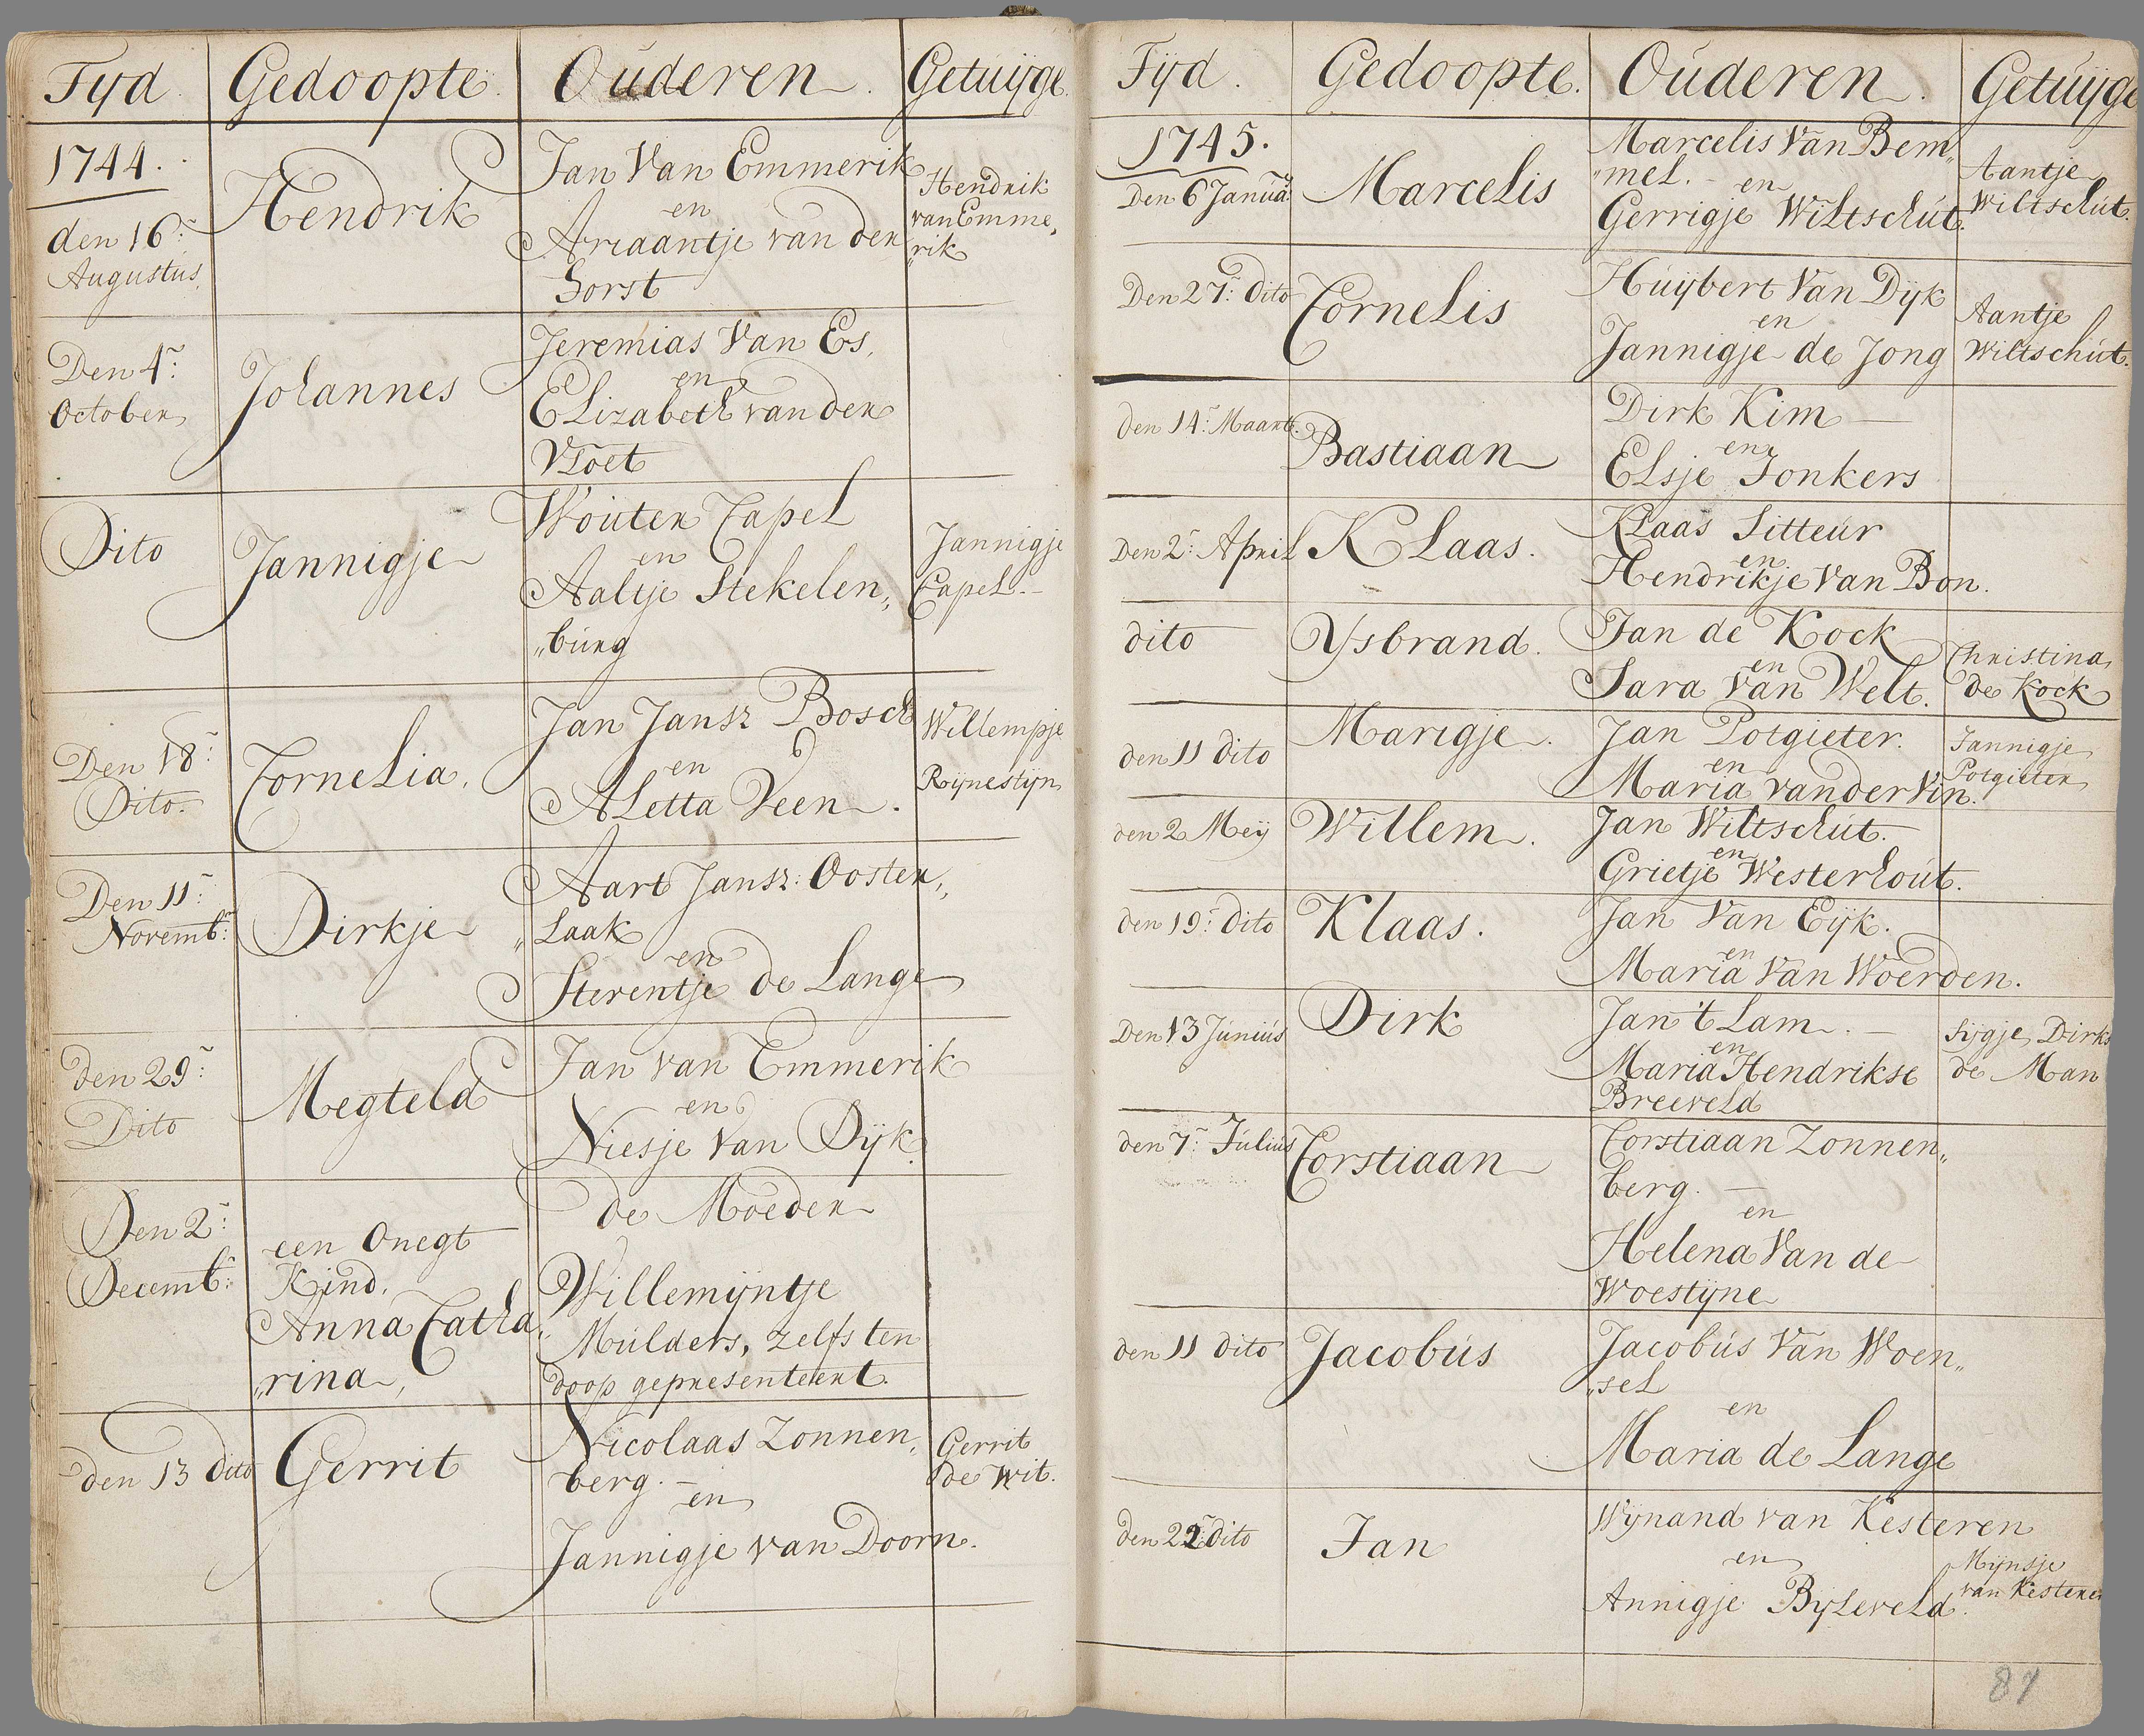 Tyd. Gedoopte. Ouderen. Getuijge.
1744.
den 16:
Augustus,
Hendrik
Jan Van Emmerik
en
Ariaantje van den
Horst
Hendrik
van Emme,
"rik
Den 4:
October,
Johannes
Jeremias Van Es,
en
Elizabeth van der
Vloet
Dito
Jannigje
Wouter Capel
en
Aaltje Stekelen,,
"burg
Jannigje
Capel.
Den 18:
Dito.
Cornelia,
Jan Jansz Bosch
en
Aletta Veen.
Willempje
Rijnestijn
Den 11:
Novemb:
Dirkje
Aart Jansz: Oosten,,
"Laak
en
Steventje de Lange
den 29:
Dito
Megteld
Jan van Emmerik
en
Niesje Van Dijk.
Den 2:
Decemb:
een Onegt
Kind,
Anna Catha,,
"rina,
de Moeder
Willemijntje
Mulders, zelfs ten
doop gepresenteert.
den 13 dito
Gerrit
Nicolaas Zonnen,
berg.
en
Jannigje van Doorn.
Gerrit
de Wit.
Tyd. Gedoopte. Ouderen. Getuijge
1745.
Den 6 Januar
Marcelis
Marcelis Van Bem,,
"mel.
en
Gerrigje Wiltschut.
Aantje
Wiltschut.
Den 27: Dito
Cornelis
Huijbert Van Dijk
en
Jannigje de Jong
Aantje
Wiltschut.
den 14: Maart.
Bastiaan
Dirk Kim
en
Elsje Jonkers
Den 2: April
Klaas.
Klaas Sitteur
en
Hendrikje Van Bon.
dito
Ysbrand.
Jan de Kock
en
Sara Van Welt.
Christina
de Kock
den 11 dito
Marigje.
Jan Potgieter.
en
Maria van der Vin.
Jannigje
Potgieter
den 2 Meij
Willem.
Jan Wiltschut.
en
Grietje Westerhout.
den 19: dito
Klaas.
Jan Van Eijk.
en
Maria Van Woerden.
Den 13 Junius
Dirk
Jan 't Lam.
en
Maria Hendrikse
Breeveld
Sijgje Dirks
de Man
den 7: Julius
Corstiaan
Corstiaan Zonnen,,
berg.
en
Helena Van de
Woestijne
den 11 dito
Jacobus
Jacobus Van Woen,,
"sel
en
Maria de Lange
den 22 dito
Jan
Wijnand van Kesteren
en
Annigje Bijleveld.
Mijnsje
van Kesteren